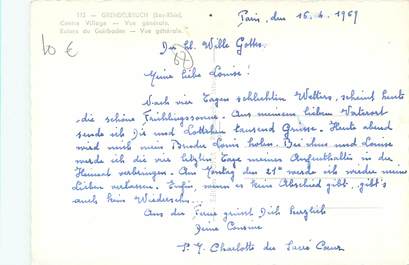 112 - GRENDELBRUCH (Bas-Rhin).
Centre Village - Vue générale.
Ruines du Guirbaden - Vue générale.
10 €
67
Paris, den 15.4.1969
Der hl. Wille Gottes.
Meine liebe Louise!
Nach vier Tagen schlechten Wetters, scheint heute
die schöne Frühlingssonne. Aus meinem lieben Vaterort
sende ich Dir und Lottchen tausend Grüsse. Heute abend
wird mich mein Bruder Louis holen. Bei ihm und Louise
werde ich die vier letzten Tage meines Aufenthaltes in der
Heimat verbringen. Am Montag den 21ten werde ich wieder meine
Lieben verlassen. Enfin, wenn es kein Abschied gibt, gibt's
auch kein Wiedersehn...
Aus der Ferne grüsst Dich herzlich
Deine Cousine
Charlotte du Sacré Cœur